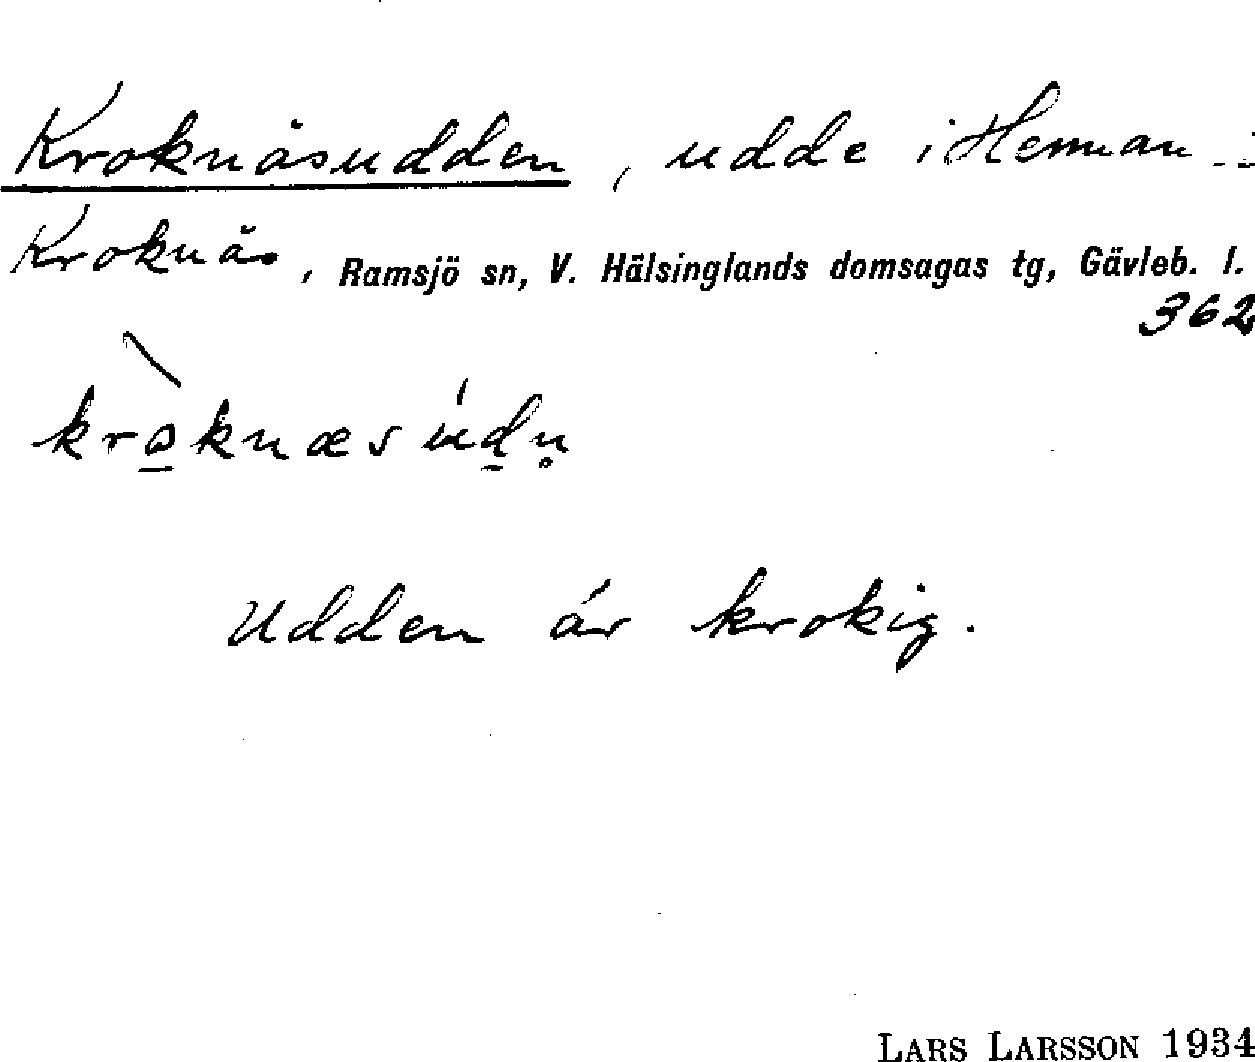 Kroknäsudden, udde i Hennan -:
Kroknäs, Ramsjö sn, V. Hälsinglands domsagas tg, Gävleb. l.
362
kròknæsúdn̥
Udden är krokig.
LARS LARSSON 1934